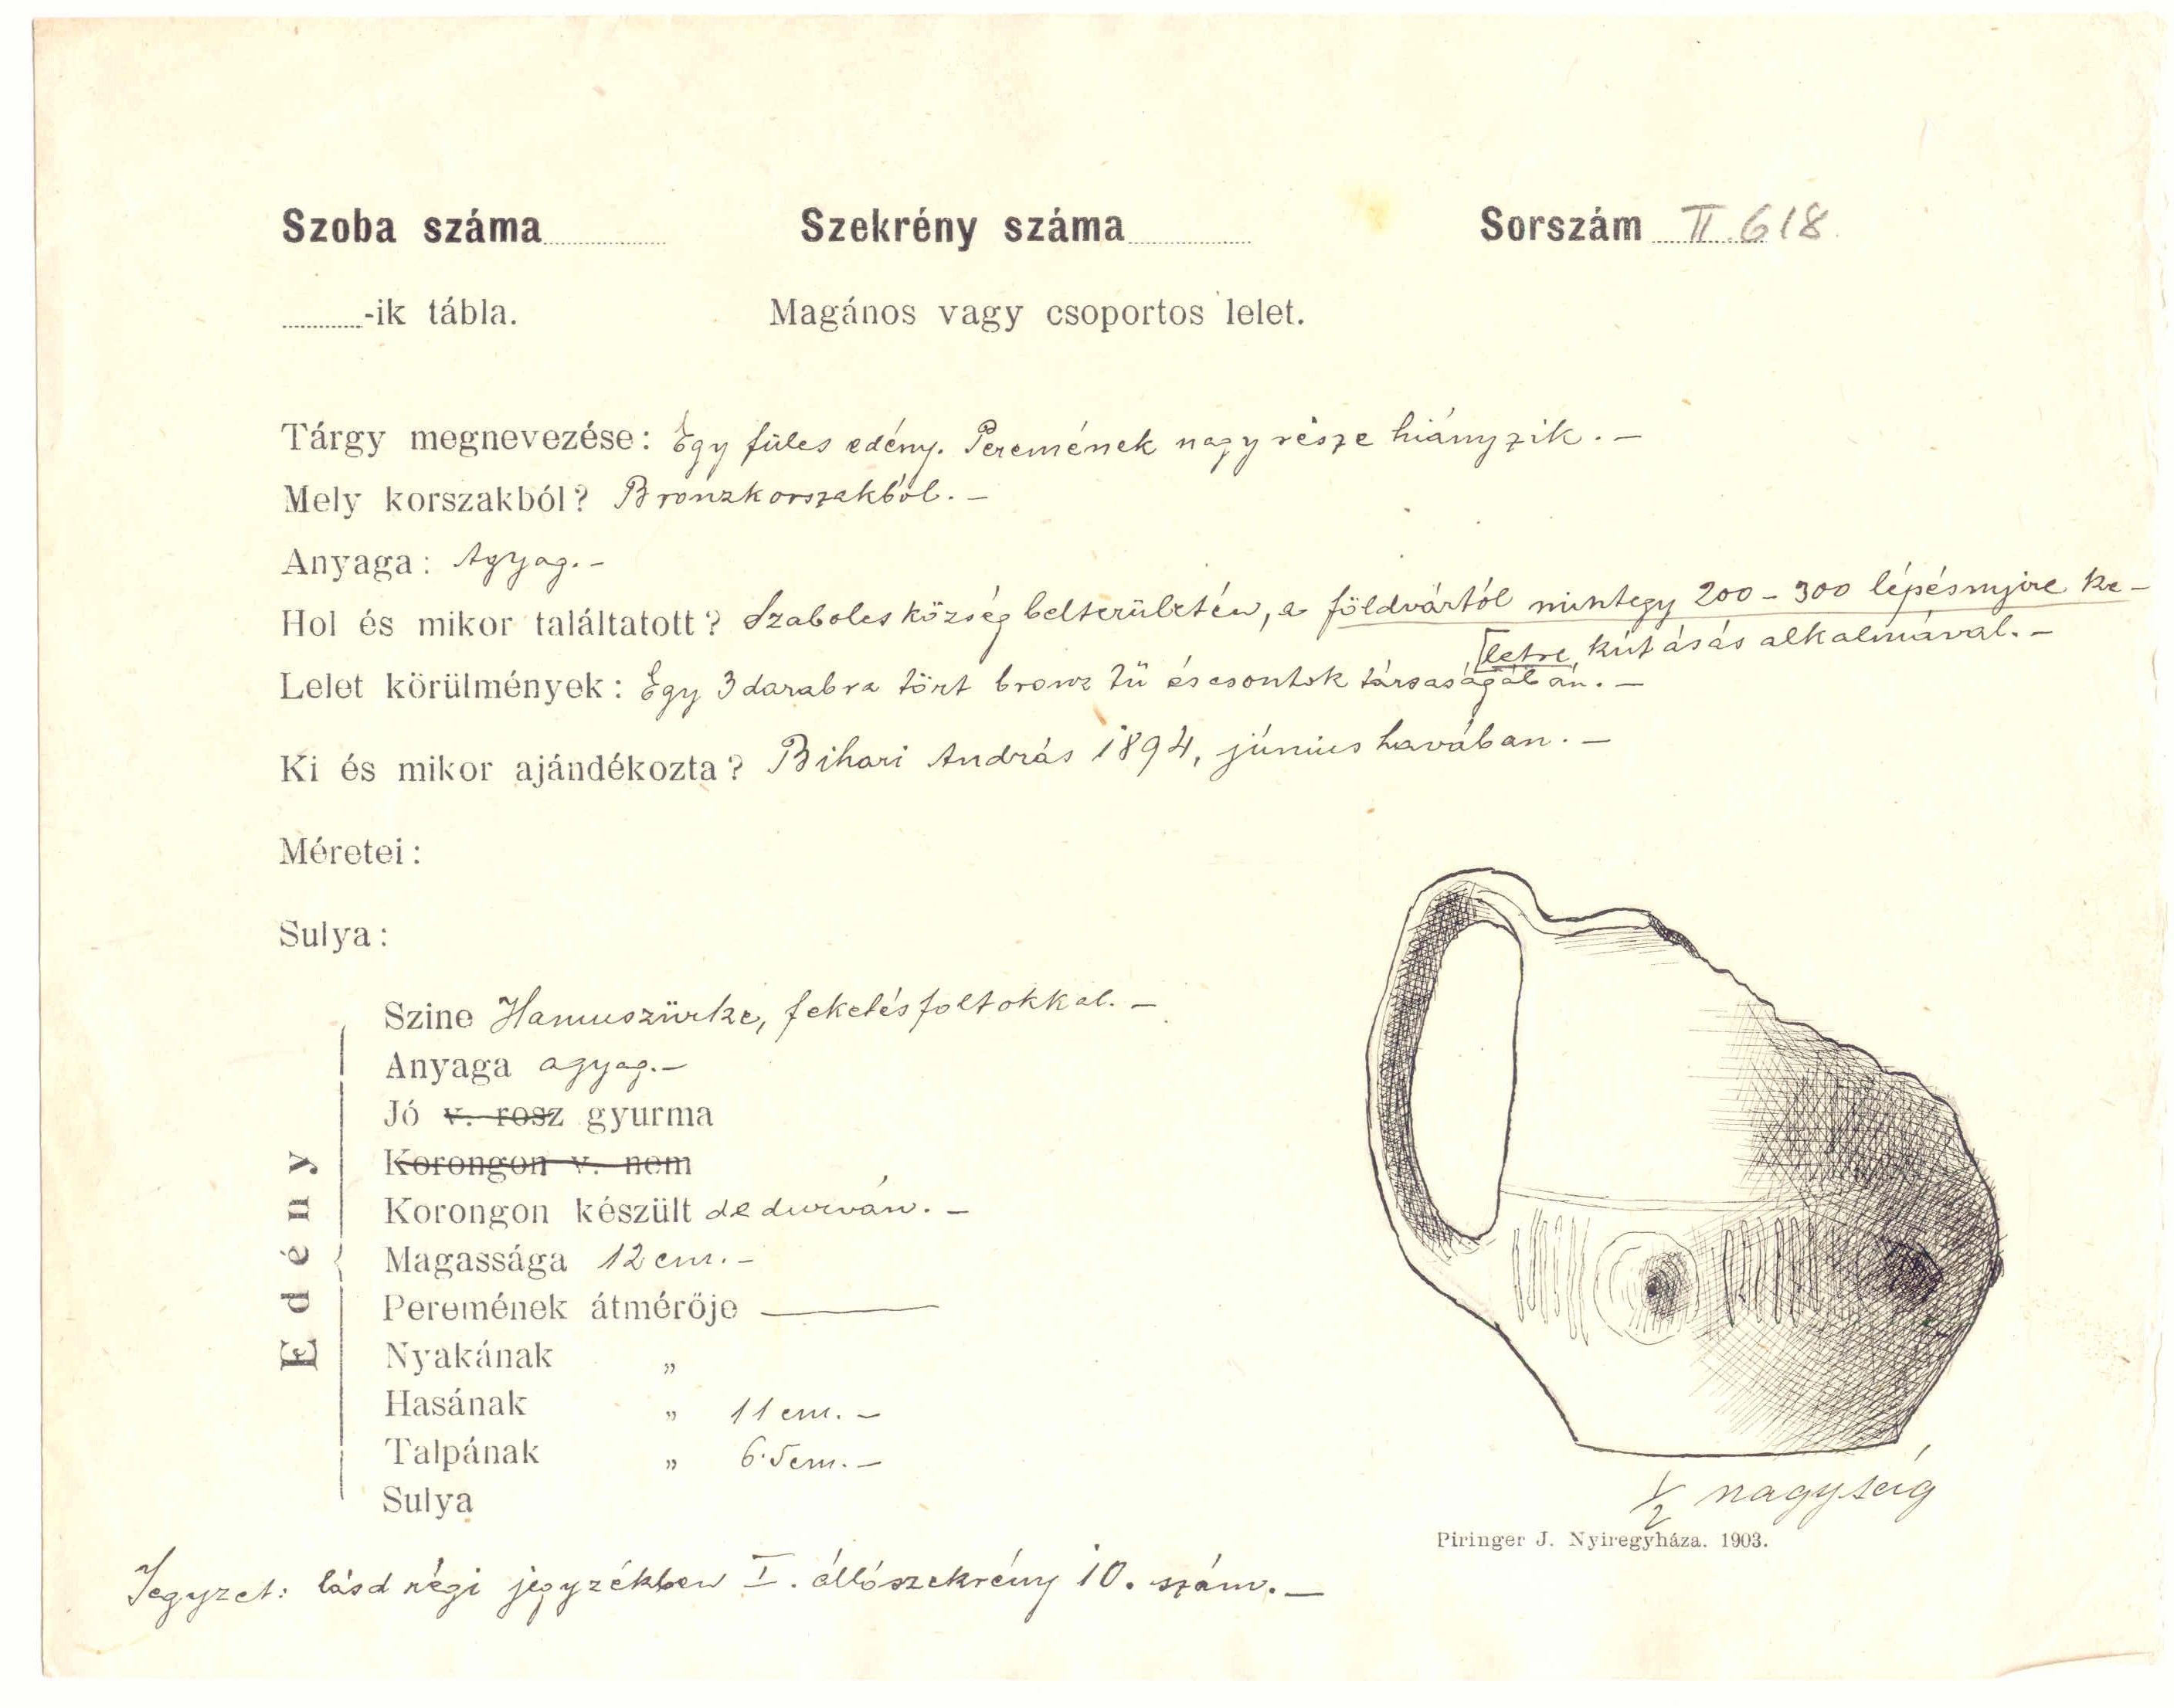 Szoba száma Szekrény száma Sorszám II.618.
-ik tábla. Magános vagy csoportos lelet.
Tárgy megnevezése: Egy füles edény. Peremének nagy része hiányzik. –
Mely korszakból? Bronzkorszakból. –
Anyaga: Agyag. –
Hol és mikor találtatott? Szabolcs község belterületén, a földvártól mintegy 200–300 lépésnyire ke-
letre, kútásás alkalmával. –
Lelet körülmények: Egy 3 darabra tört bronz tű és csontok társaságában. –
Ki és mikor ajándékozta? Bihari András 1894, június havában. –
Méretei:
Sulya:
Edény
Szine Hamuszürke, feketés foltokkal. –
Anyaga agyag. –
Jó v. rosz gyurma
Korongon v. nem
Korongon készült de durván. –
Magassága 12 cm. –
Peremének átmérője ——
Nyakának „
Hasának „ 11 cm. –
Talpának „ 6·5 cm. –
Sulya
1/2 nagyság
Piringer J. Nyiregyháza. 1903.
Jegyzet: lásd régi jegyzékben I. állószekrény 10. szám. –